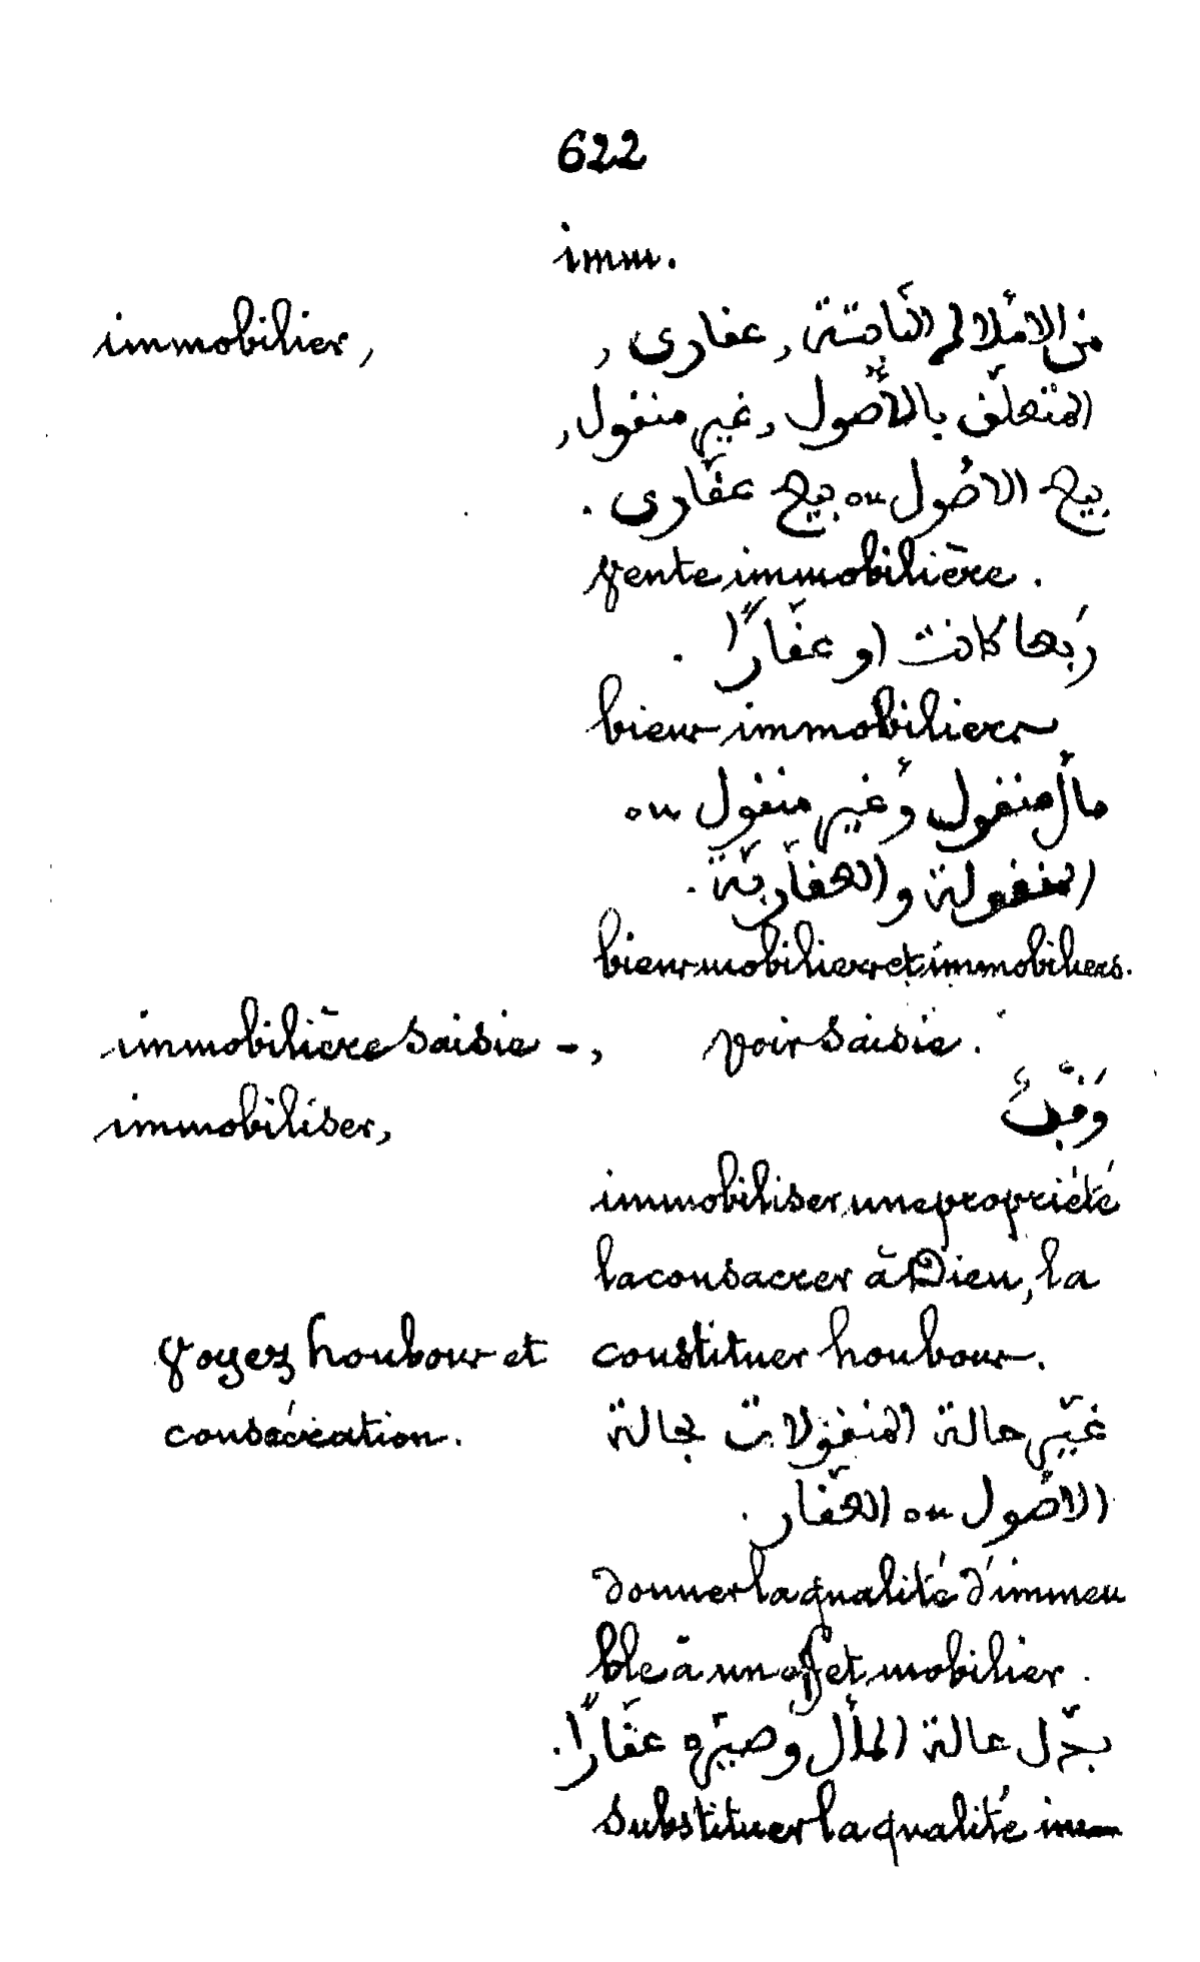 622
imm.
immobilier, من الاملاك الثابتة, عقارى,
المتعلّق بالأصول, غير منقول,
بيع الاصول ou بيع عقّارى.
vente immobilière.
ربعا كانت او عقّارًا.
biens immobiliers
مال منقول وغير منقول ou
المنقولة والعقّاريّة.
biens mobiliers et immobiliers.
immobilière saisie -, voir saisie.
immobiliser, وقّف
immobiliser une propriété
la consacrer à Dieu, la
voyez houbous et constituer houbous.
consécration. غيّر حالة المنقولات بحالة
الاصول ou العقّار.
donner la qualité d'immeu
ble à un effet mobilier.
بدّل حالة المال وصيّره عقّارًا.
substituer la qualité im-